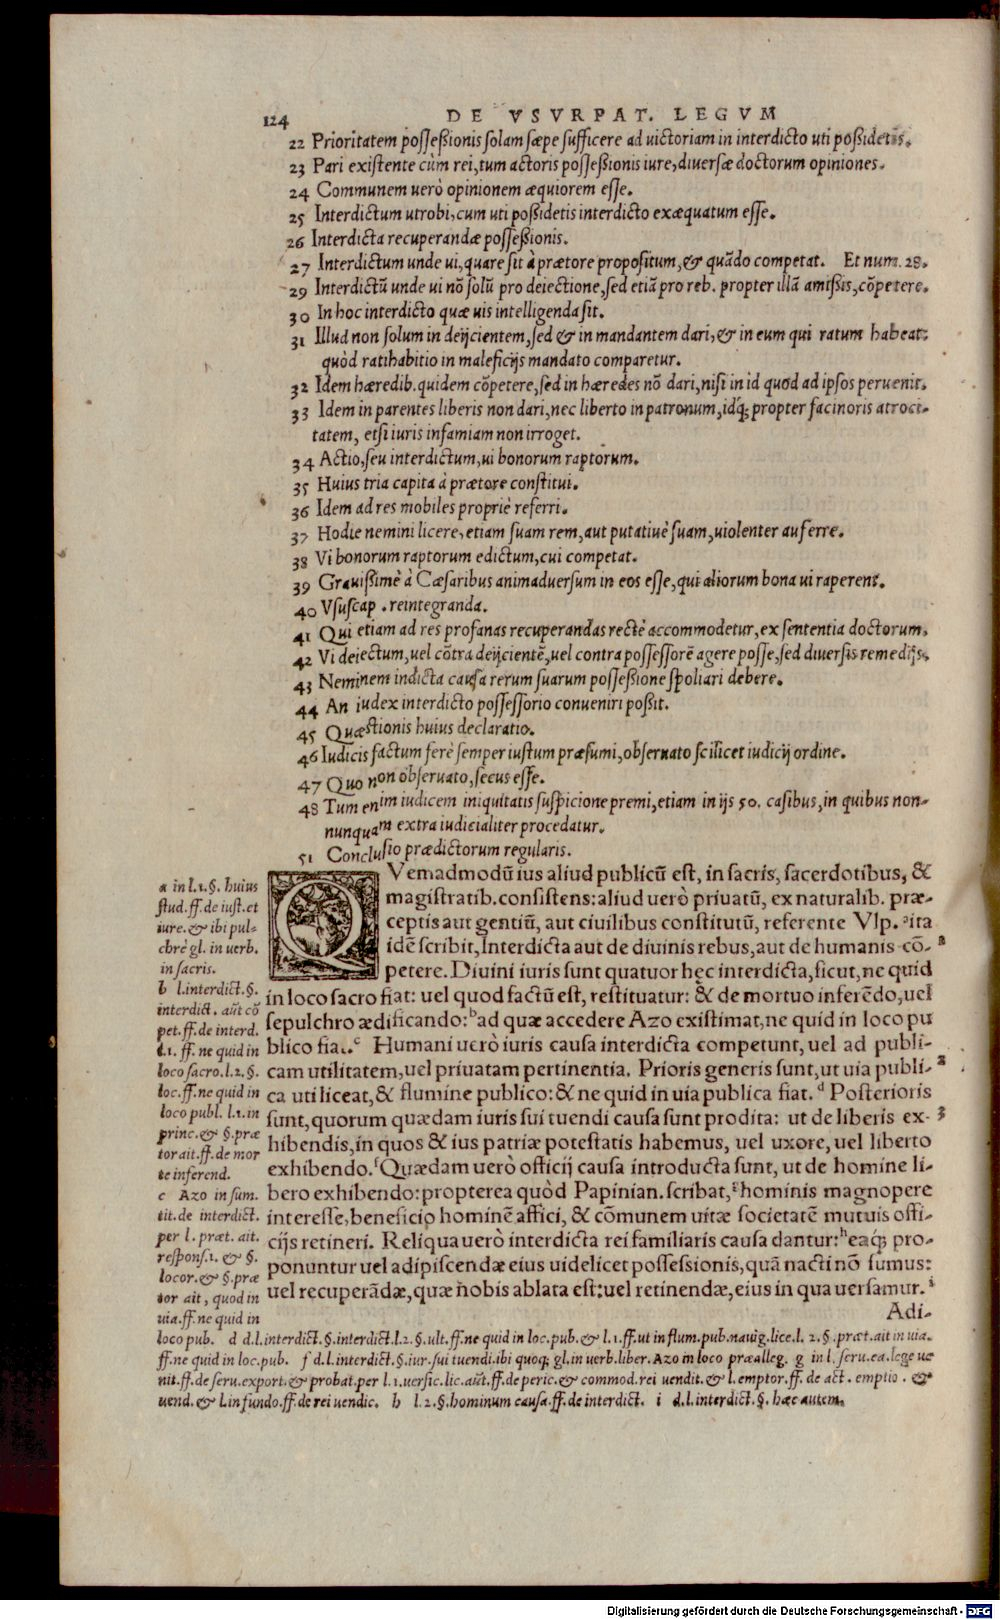 124
DE VSVRPAT. LEGVM
22 Prioritatem possessionis solam sæpe sufficere ad uictoriam in interdicto uti poßidetis.
23 Pari existente cùm rei, tum actoris possessionis iure, diuersæ doctorum opiniones.
24 Communem uerò opinionem æquiorem esse.
25 Interdictum utrobi, cum uti poßidetis interdicto exæquatum esse.
26 Interdicta recuperandæ posseßionis.
27 Interdictum unde ui, quare sit à prætore propositum, & quādo competat. Et num. 28.
29 Interdictū unde ui nō solū pro deiectione, sed etiā pro reb. propter illā amißis, cōpetere.
30 In hoc interdicto quæ uis intelligenda sit.
31 Illud non solum in deijcientem, sed & in mandantem dari, & in eum qui ratum habeat:
quòd ratihabitio in maleficijs mandato comparetur.
32 Idem hæredib. quidem cōpetere, sed in hæredes nō dari, nisi in id quod ad ipsos peruenit.
33 Idem in parentes liberis non dari, nec liberto in patronum, idq; propter facinoris atroci-
tatem, etsi iuris infamiam non irroget.
34 Actio, seu interdictum, ui bonorum raptorum.
35 Huius tria capita à prætore constitui.
36 Idem ad res mobiles propriè referri.
37 Hodie nemini licere, etiam suam rem, aut putatiuè suam, uiolenter auferre.
38 Vi bonorum raptorum edictum, cui competat.
39 Grauißimè à Cæsaribus animaduersum in eos esse, qui aliorum bona ui raperent.
40 Vsuscap. reintegranda.
41 Qui etiam ad res profanas recuperandas rectè accommodetur, ex sententia doctorum.
42 Vi deiectum, uel cōtra deijcientē, uel contra possessorē agere posse, sed diuersis remedijs.
43 Neminem indicta causa rerum suarum posseßione spoliari debere.
44 An iudex interdicto possessorio conueniri poßit.
45 Quæstionis huius declaratio.
46 Iudicis factum ferè semper iustum præsumi, obseruato scilicet iudicij ordine.
47 Quo non obseruato, secus esse.
48 Tum enim iudicem iniquitatis suspicione premi, etiam in ijs 50. casibus, in quibus non-
nunquam extra iudicialiter procedatur.
51 Conclusio prædictorum regularis.
QVemadmodū ius aliud publicū est, in sacris, sacerdotibus, &
magistratib. consistens: aliud uerò priuatū, ex naturalib. præ-
ceptis aut gentiū, aut ciuilibus constitutū, referente Vlp. a ita
idē scribit, Interdicta aut de diuinis rebus, aut de humanis cō- 2
petere. Diuini iuris sunt quatuor hęc interdicta, sicut, ne quid
in loco sacro fiat: uel quod factū est, restituatur: & de mortuo inferēdo, uel
sepulchro ædificando: b ad quæ accedere Azo existimat, ne quid in loco pu
blico fiat. c Humani uerò iuris causa interdicta competunt, uel ad publi-
cam utilitatem, uel priuatam pertinentia. Prioris generis sunt, ut uia publi- 2
ca uti liceat, & flumine publico: & ne quid in uia publica fiat. d Posterioris
sunt, quorum quædam iuris sui tuendi causa sunt prodita: ut de liberis ex- 3
hibendis, in quos & ius patriæ potestatis habemus, uel uxore, uel liberto
exhibendo. f Quædam uerò officij causa introducta sunt, ut de homine li-
bero exhibendo: propterea quòd Papinian. scribat, g hominis magnopere
interesse, beneficio hominē affici, & cōmunem uitæ societatē mutuis offi-
cijs retineri. Reliqua uerò interdicta rei familiaris causa dantur: h eaq; pro-
ponuntur uel adipiscendæ eius uidelicet possessionis, quā nacti nō sumus:
uel recuperādæ, quæ nobis ablata est: uel retinendæ, eius in qua uersamur. i
Adi-
a in l.1.§. huius
stud.ff.de iust.et
iure.& ibi pul-
chrè gl. in uerb.
in sacris.
b l.interdict.§.
interdict. aūt cō
pet.ff.de interd.
l.1. ff. ne quid in
loco sacro.l.2.§.
loc.ff.ne quid in
loco publ. l.1.in
princ.& §.præ
tor ait.ff.de mor
te inferend.
c Azo in sum.
tit.de interdict.
per l. præt. ait.
respons.1. & §.
locor.& §.præ
tor ait, quod in
uia.ff.ne quid in
loco pub. d d.l.interdict.§.interdict.l.2.§.ult.ff.ne quid in loc.pub.& l.1.ff.ut in flum.pub.nauig.lice.l. 2.§.præt.ait in uia.
ff.ne quid in loc.pub. f d.l.interdict.§.iur.sui tuendi.ibi quoq; gl.in uerb.liber. Azo in loco præalleg. g in l. seru.ea.lege ue
nit.ff.de seru.export.& probat.per l.1.uersic.lic.aūt.ff.de peric.& commod.rei uendit.& l.emptor.ff.de act. emptio. &
uend.& l.in fundo.ff.de rei uendic. h l.2.§.hominum causa.ff.de interdict. i d.l.interdict.§. hæc autem.
Digitalisierung gefördert durch die Deutsche Forschungsgemeinschaft - DFG